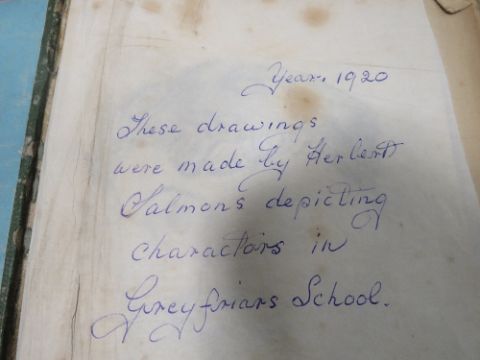 Year. 1920
These drawings
were made by Herbert
Salmons depicting
charactors in
Greyfriars School.